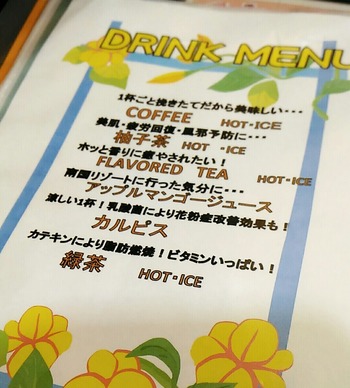 DRINK MENU
1杯ごと挽きたてだから美味しい・・・
COFFEE HOT・ICE
美肌・疲労回復・風邪予防に・・・
柚子茶 HOT・ICE
ホッと香りに癒やされたい！
FLAVORED TEA HOT・ICE
南国リゾートに行った気分に・・・
アップルマンゴージュース
涼しい1杯！乳酸菌により花粉症改善効果も！
カルピス
カテキンにより脂肪燃焼！ビタミンいっぱい！
緑茶 HOT・ICE